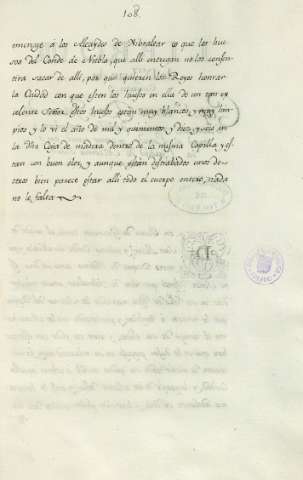 108.
encarge á los Alcaydes de Gibraltar q que los hue-
sos del Conde de Niebla, que alli entregan no los consien-
tira sacar de alli, por que quieren los Reyes honrrar
la Ciudad con que esten los huesos en ella de un tan ex-
celente Señor. Estos huesos están muy blancos, y muy lim-
pios y lo vi el año de mil y quinientos, y diez, y
la dha Caja de madera dentro de la misma Capilla y es-
tan con buen olor, y aunque están distrabados unos de
otros bien parece estar alli todo el cuerpo entero, nada
no le falta